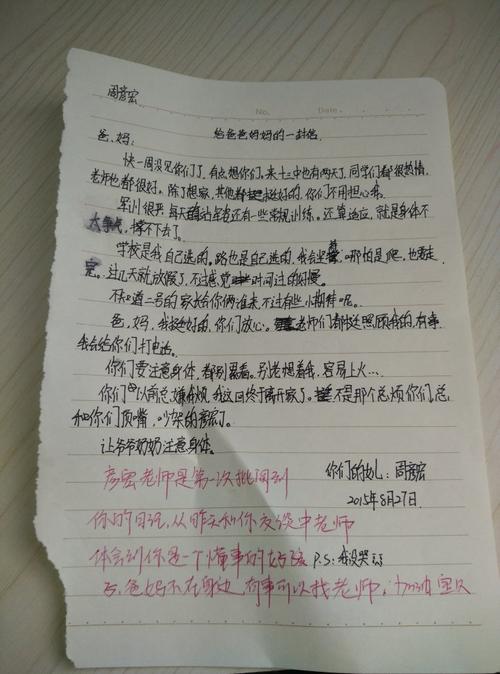 周彦宏
No.
Date.
给爸爸妈妈的一封信
爸,妈:
快一周没见你们了,有点想你们。来十三中也有两天了,同学们都很热情,
老师也都很好。除了想家,其他都挺好的,你们不用担心我。
军训很累,每天还有一些常规训练。还算适应,就是身体不
大争气,撑不下去了。
学校是我自己选的。路也是自己选的,我会坚,哪怕是爬,也要走
完。过几天就放假了,不过感觉时间过的好慢。
不知道二号的家长会你俩谁来,不过有些小期待呢。
爸,妈,我挺好的,你们放心。老师们都挺照顾我的,有事
我会给你们打电话。
你们要注意身体,都别累着。别老想着我,容易上火…
你们以前总嫌我烦,我这回终于离开家了。不是那个总烦你们,总
和你们顶嘴,吵架的彦宏了。
让爷爷奶奶注意身体。
你们的女儿:周彦宏
2015年8月27日.
P.S:我没哭
彦宏老师是第一次批阅到
你的日记,从昨天和你交谈中老师
体会到你是一个懂事的好孩
子,爸妈不在身边,有事可以找老师,加油宝贝